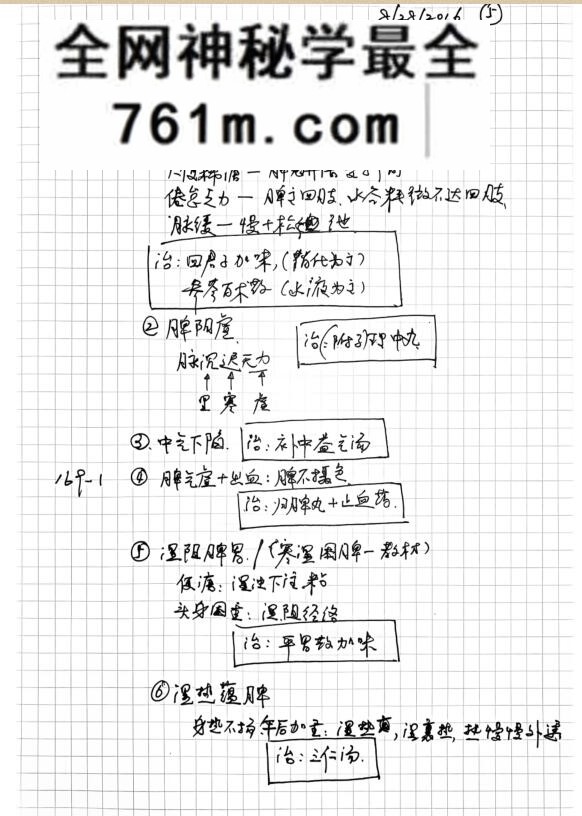 8/28/2016 (5)
全网神秘学最全
761m.com
倦怠乏力—脾主四肢、水谷精微不达四肢
脉缓—慢+松弛
治:四君子加味,(替代为主)
参苓白术散(水液为主)
② 脾阳虚
治:(附子)理中丸
脉沉迟无力
↑ ↑ ↑
里 寒 虚
③ 中气下陷. 治:补中益气汤
169-1 ④ 脾气虚+出血:脾不摄色
治:归脾丸+止血药.
⑤ 湿阻脾胃/(寒湿困脾—教材)
便溏:湿浊下注
头身困重:湿阻经络
治:平胃散加味
⑥ 湿热蕴脾
身热不扬 午后加重:湿热蕴,湿裹热,热慢慢外透
治:三仁汤.